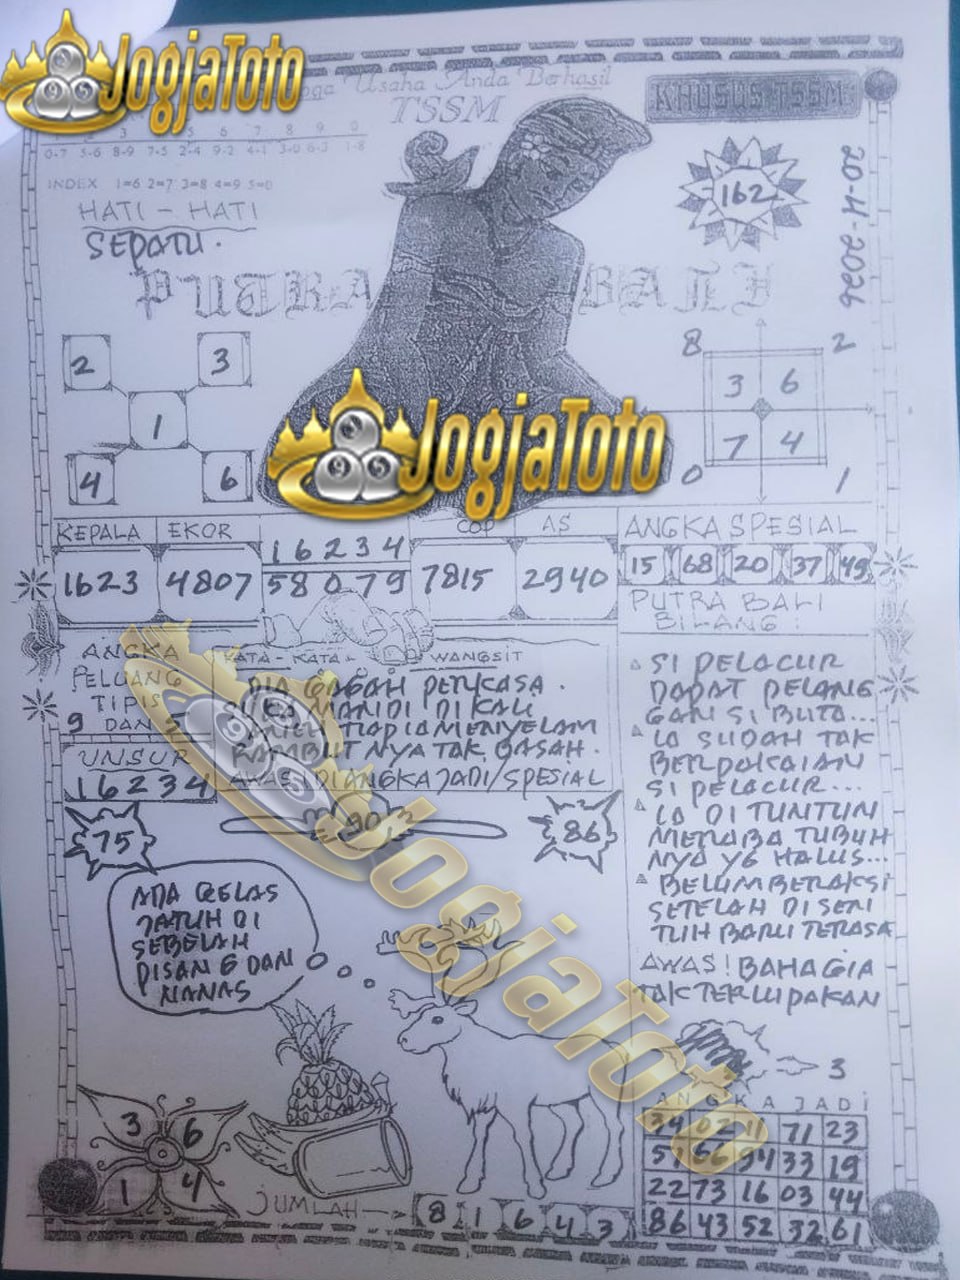 JogjaToto
Usaha Anda Berhasil
TSSM
KHUSUS TSSM
3 5 6 7 8 9 0
0-7 5-6 8-9 7-5 2-4 9-2 4-1 3-0 6-3 1-8
INDEX 1=6 2=7 3=8 4=9 5=0
HATI - HATI
SEPATU.
162
20-4-2026
PUTRA BALI
2 3
1
4 6
8 2
3 6
7 4
0 1
JogjaToto
KEPALA EKOR COP AS
1623 4807
16234
58079
7815 2940
ANGKA SPESIAL
15 68 20 37 49
PUTRA BALI
BILANG :
ANGKA
PELUANG
TIPIS
9 DAN
UNSUR
16234
KATA - KATA WANGSIT
DIA GAGAH PERKASA.
SUKA MANDI DI KALI
TIAP IA MENYELAM
RAMBUTNYA TAK BASAH.
AWAS DIANGKA JADI/SPESIAL
SI PELACUR
DAPAT PELANG
GAN SI BUTA...
IA SUDAH TAK
BERPAKAIAN
SI PELACUR...
IA DI TUNTUN
MERABA TUBUH
NYA YG HALUS...
BELUM BERAKSI
SETELAH DI SEN
TUH BARU TERASA
AWAS! BAHAGIA
TAK TERLUPAKAN
75
90
86
ADA GELAS
JATUH DI
SEBELAH
PISANG DAN
NANAS
JogjaToto
3
3 6
1 4
JUMLAH
8 1 6 4 3
ANGKA JADI
34 02 11 71 23
51 66 94 33 19
22 73 16 03 44
86 43 52 32 61